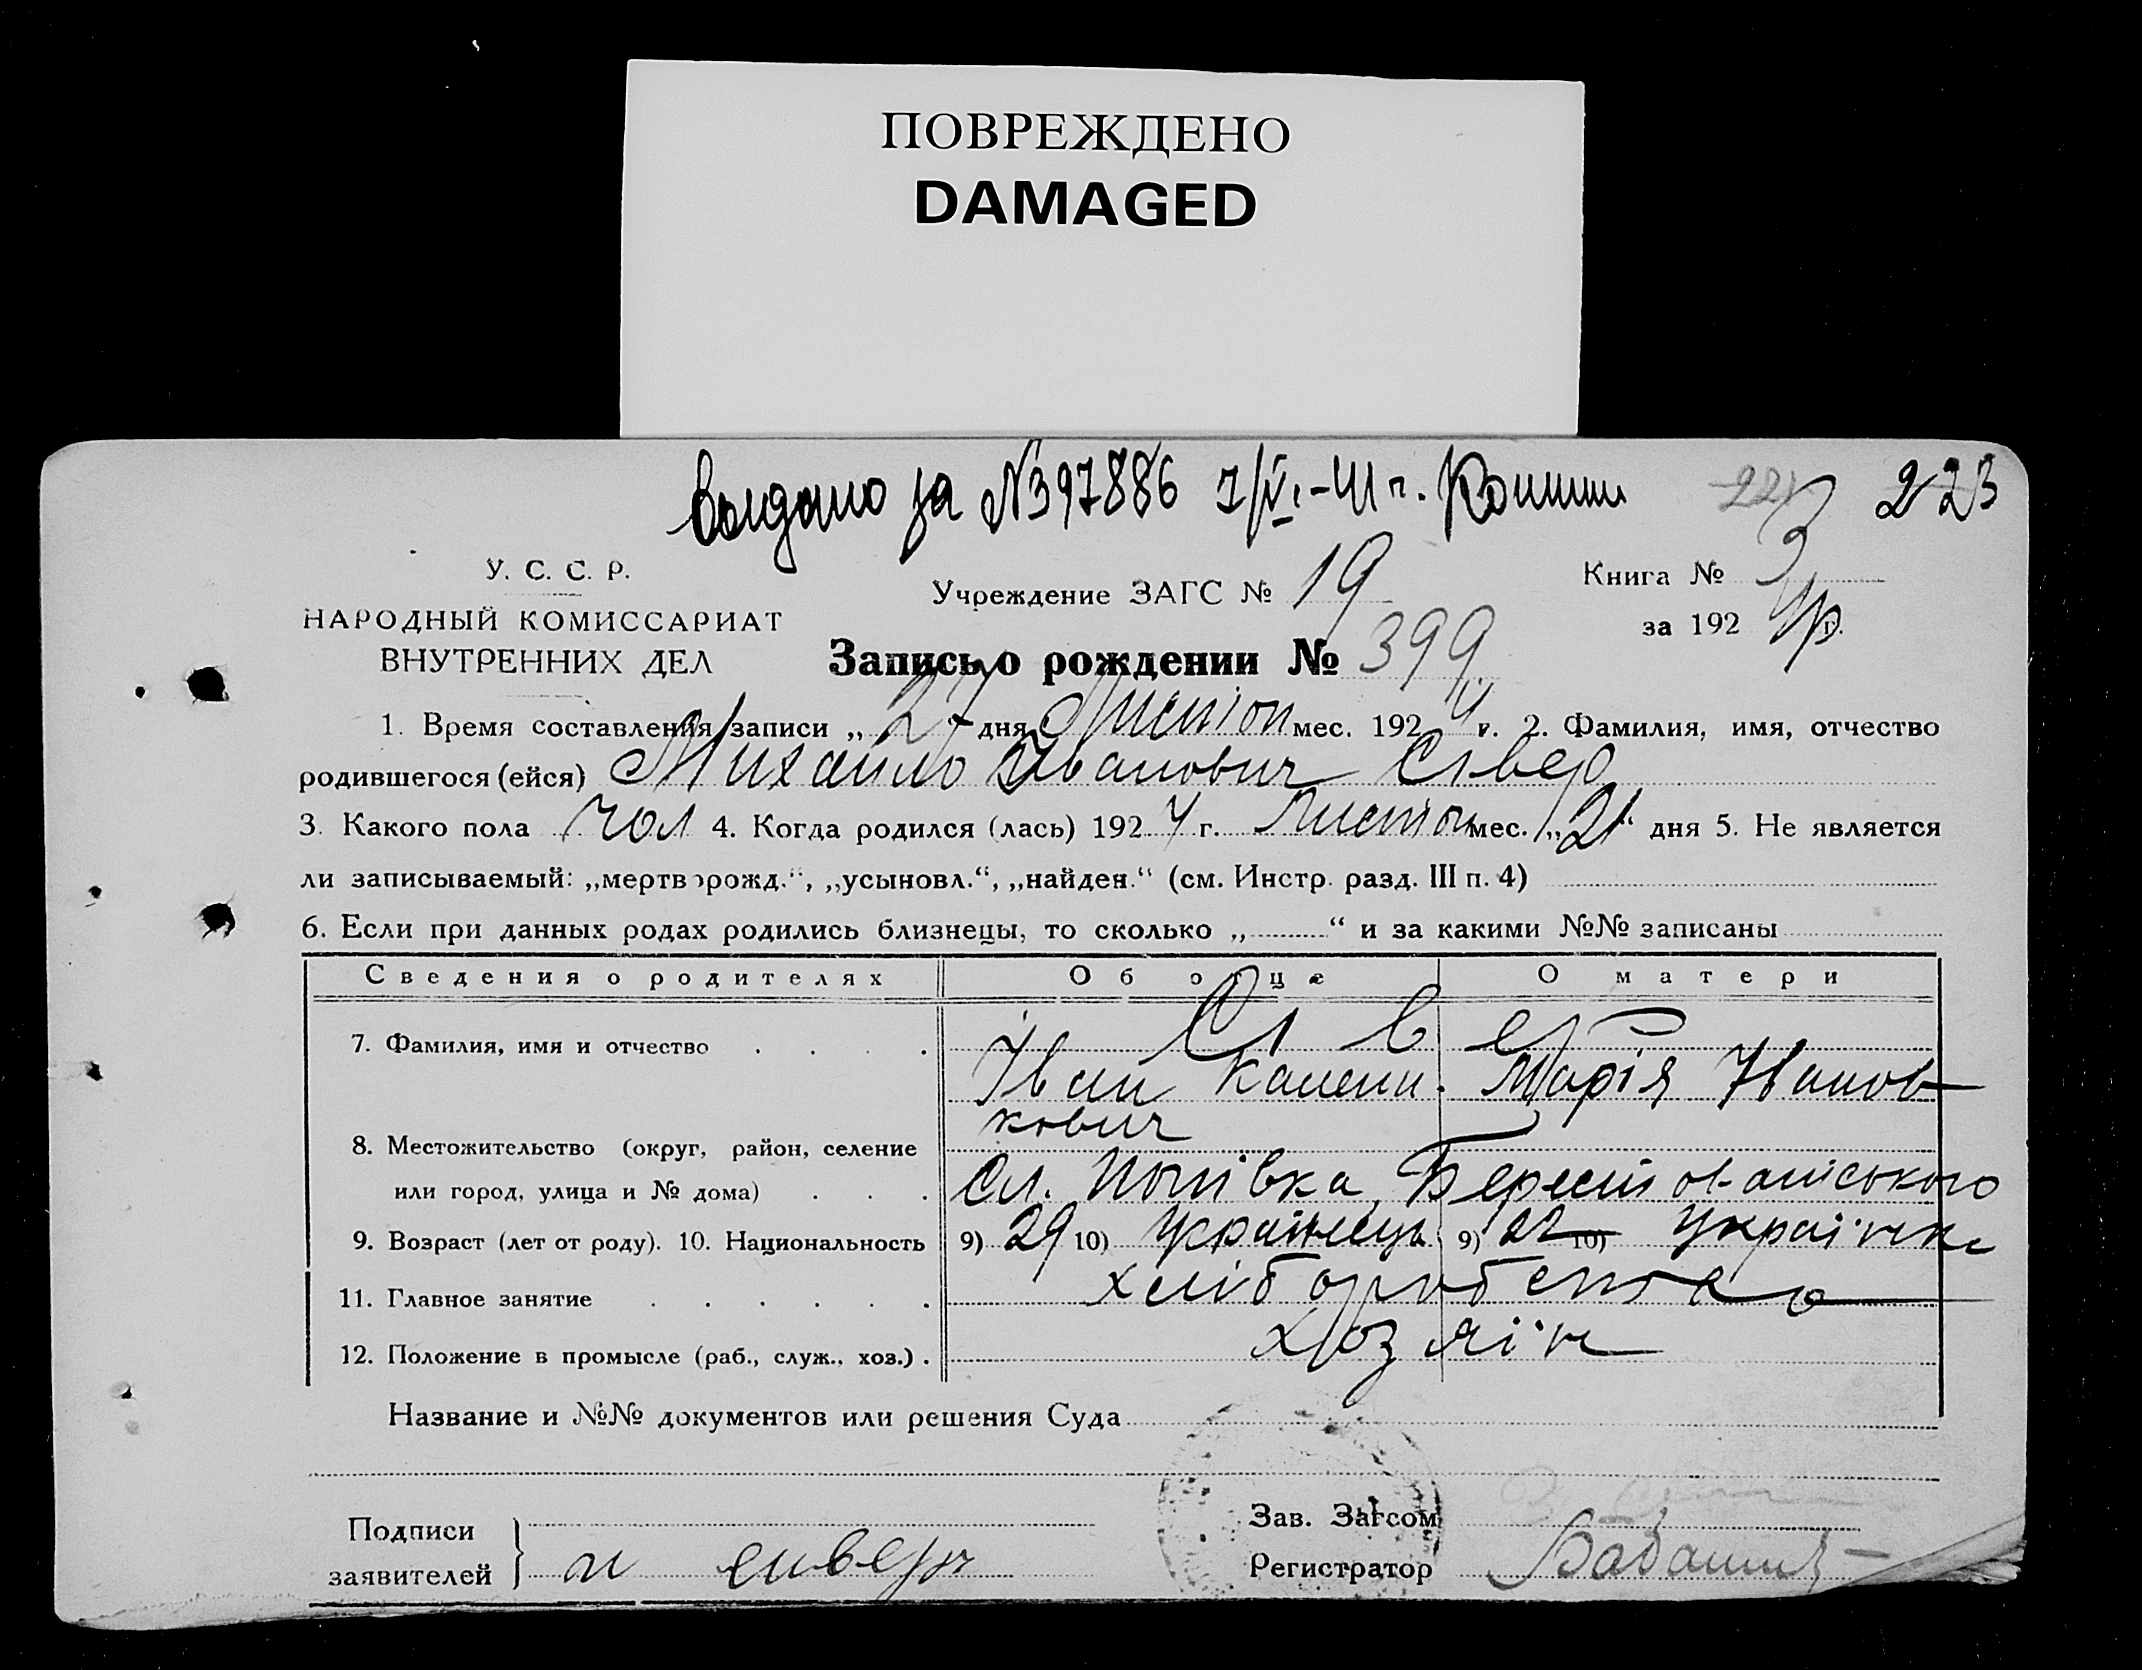 ПОВРЕЖДЕНО
DAMAGED
выдано за №397886 1/VI.-41 г. Копии 223
У. С. С. Р.
НАРОДНЫЙ КОМИССАРИАТ
ВНУТРЕННИХ ДЕЛ
Учреждение ЗАГС № 19
Книга № 3
за 192 4 р г.
Запись о рождении № 399
1. Время составления записи „27“ дня Листоп мес. 1924 г. 2. Фамилия, имя, отчество
родившегося (ейся) Михайло Іванович Сівер
3. Какого пола чол 4. Когда родился (лась) 1924 г. Листоп мес. „21“ дня 5. Не является
ли записываемый: „мертворожд.“, „усыновл.“, „найден.“ (см. Инстр. разд. III п. 4)
6. Если при данных родах родились близнецы, то сколько „ “ и за какими №№ записаны
Сведения о родителях Об отце О матери
7. Фамилия, имя и отчество Сівер
Іван Калени- Марія Іванов
кович
8. Местожительство (округ, район, селение
или город, улица и № дома) Сл. Попівка, Берестованського
9. Возраст (лет от роду). 10. Национальность 9) 29 10) Українець 9) 22 10) Українка
11. Главное занятие хліборобство
12. Положение в промысле (раб., служ., хоз.) Хозяїн
Название и №№ документов или решения Суда
Подписи
заявителей и сивер
Зав. Загсом
Регистратор